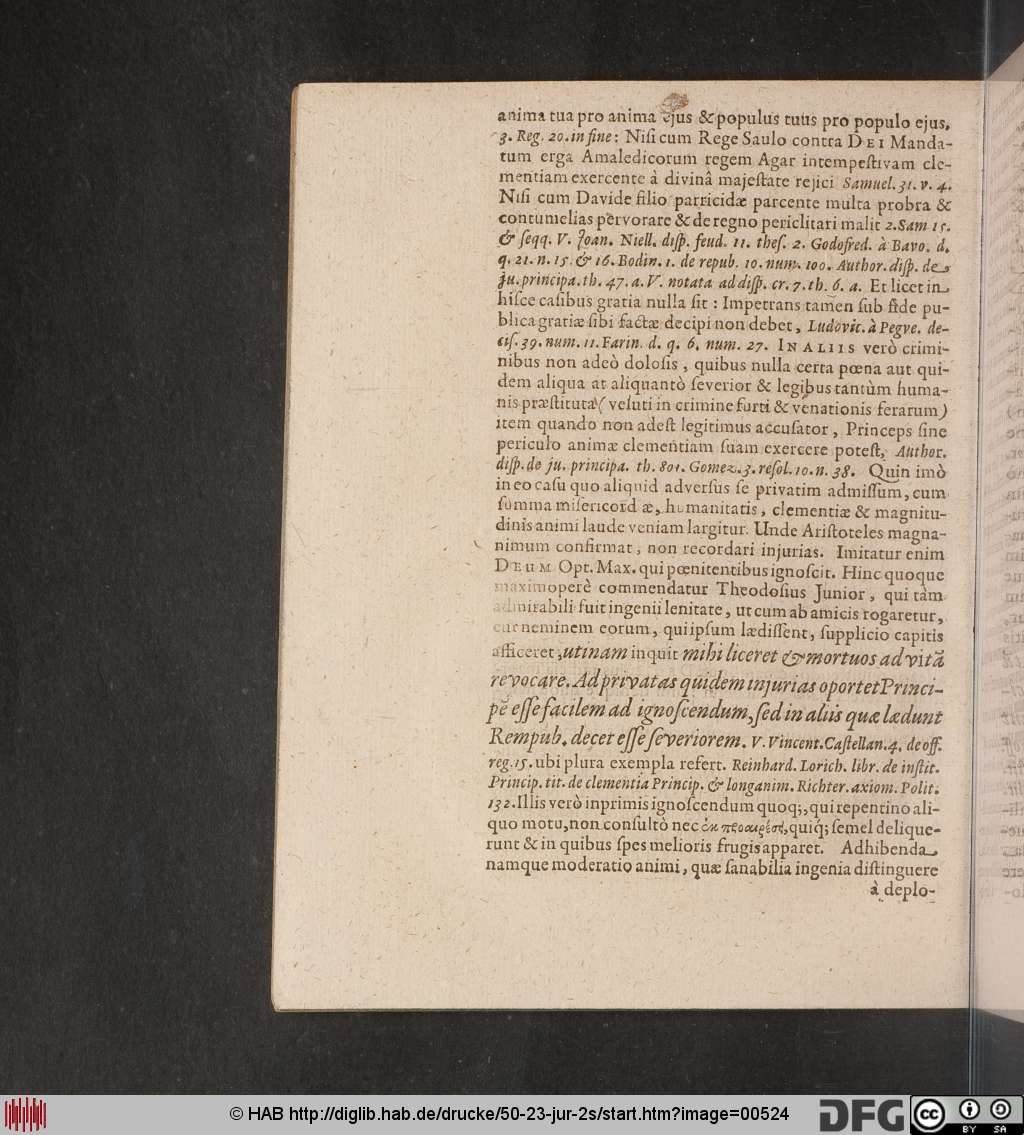 anima tua pro anima ejus & populus tuus pro populo ejus,
3. Reg. 20. in fine: Niſi cum Rege Saulo contra DEI Manda-
tum erga Amaledicorum regem Agar intempeſtivam cle-
mentiam exercente à divinâ majeſtate rejici Samuel. 31. v. 4.
Niſi cum Davide filio parricidæ parcente multa probra &
contumelias pervorare & de regno periclitari malit 2. Sam 15.
& ſeqq. V. Joan. Niell. diſp. feud. 11. theſ. 2. Godofred. à Bavo. d.
q. 21. n. 15. & 16. Bodin. 1. de repub. 10. num. 100. Author. diſp. de
ju. principa. th. 47. a. V. notata ad diſp. cr. 7. th. 6. a. Et licet in
hiſce caſibus gratia nulla ſit: Impetrans tamen ſub fide pu-
blica gratiæ ſibi factæ decipi non debet, Ludovic. à Pegve. de-
ciſ. 39. num. 11. Farin. d. q. 6. num. 27. IN ALIIS verò crimi-
nibus non adeò doloſis, quibus nulla certa pœna aut qui-
dem aliqua at aliquantò ſeverior & legibus tantùm huma-
nis præſtituta (veluti in crimine furti & venationis ferarum)
item quando non adeſt legitimus accuſator, Princeps ſine
periculo animæ clementiam ſuam exercere poteſt, Author.
diſp. de ju. principa. th. 801. Gomez. 3. reſol. 10. n. 38. Quin imò
in eo caſu quo aliquid adverſus ſe privatim admiſſum, cum
ſumma miſericord æ, humanitatis, clementiæ & magnitu-
dinis animi laude veniam largitur. Unde Ariſtoteles magna-
nimum confirmat, non recordari injurias. Imitatur enim
DEUM Opt. Max. qui pœnitentibus ignoſcit. Hinc quoque
maximoperè commendatur Theodoſius Junior, qui tàm
admirabili fuit ingenii lenitate, ut cum ab amicis rogaretur,
cur neminem eorum, qui ipſum lædiſſent, ſupplicio capitis
afficeret, utinam inquit mihi liceret & mortuos ad vitã
revocare. Ad privatas quidem injurias oportet Princi-
pẽ eſſe facilem ad ignoſcendum, ſed in aliis quæ lædunt
Rempub. decet eſſe ſeveriorem. V. Vincent. Caſtellan. 4. de off.
reg. 15. ubi plura exempla refert. Reinhard. Lorich. libr. de inſtit.
Princip. tit. de clementia Princip. & longanim. Richter. axiom. Polit.
132. Illis verò inprimis ignoſcendum quoq;, qui repentino ali-
quo motu, non conſultò nec ἐκ προαιρέσε, quiq́; ſemel delique-
runt & in quibus ſpes melioris frugis apparet. Adhibenda
namque moderatio animi, quæ ſanabilia ingenia diſtinguere
à deplo-
© HAB http://diglib.hab.de/drucke/50-23-jur-2s/start.htm?image=00524
DFG
cc BY SA